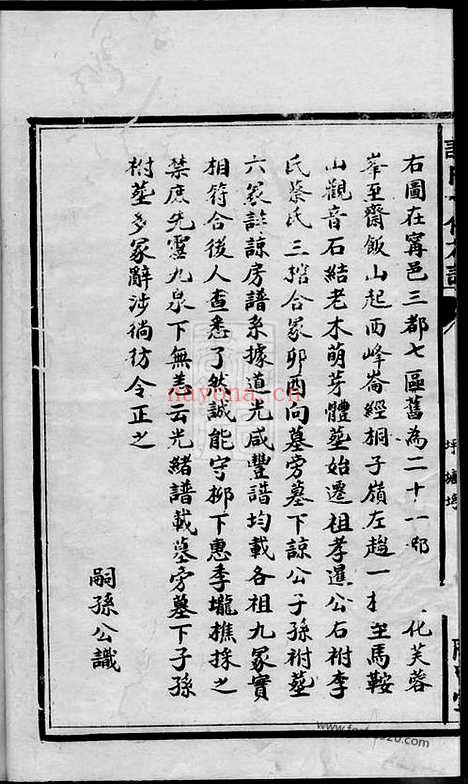 右圖在甯邑三都七區舊為二十一都 化芙蓉
峯至齋飯山起西峰崙經桐子嶺左趨一 至馬鞍
山觀音石結老木萌芽體葬始遷祖孝暹公右祔李
氏蔡氏三棺合冢卯酉向墓旁墓下諒公子孫祔葬
六冢註諒房譜系據道光咸豐譜均載各祖九冢實
相符合後人查悉了然誠能守柳下惠季壠樵採之
禁庶先靈九泉下無恙云光緒譜載墓旁墓下子孫
祔葬多冢辭涉徜彷令正之
嗣孫公識
坪塘塆
nayona.cn